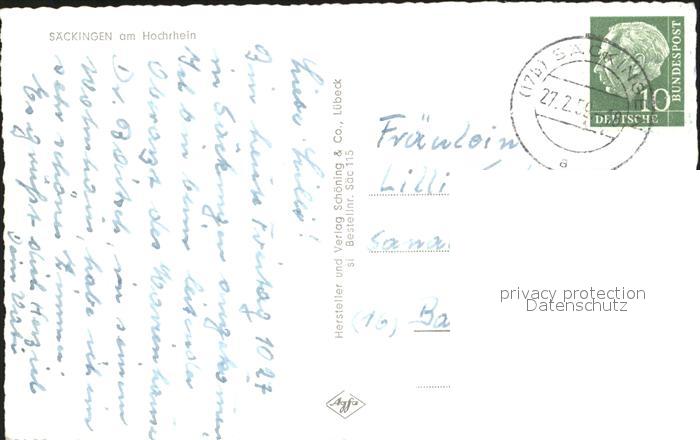 SÄCKINGEN am Hochrhein
Liebe Lilli!
Bin heute Freitag 10 27
in Säckingen angekommen
Ich bin beim leitenden
Oberarzt des Krankenhauses
Dr. in seinem
Wohnhaus, habe ich ein
sehr schönes Zimmer
Es grüßt dich Herzlich
Dein Vati
Hersteller und Verlag Schöning & Co., Lübeck
si Bestellnr. Säc 115
Agfa
(17b) SÄCKINGE
27.2.59
a
10
DEUTSCHE
BUNDESPOST
Fräulein
Lilli
Sana
(16) Ba
privacy protection
Datenschutz